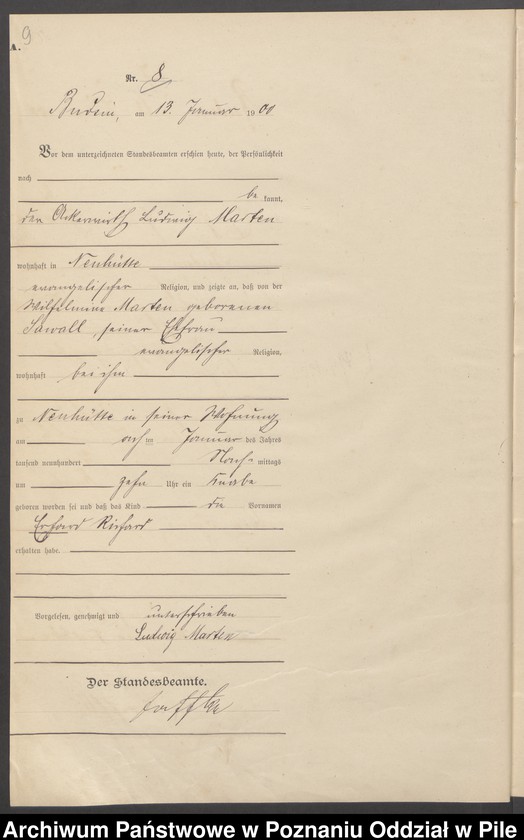 9
A.
Nr. 8
Budsin, am 13. Januar 1900
Vor dem unterzeichneten Standesbeamten erschien heute, der Persönlichkeit
nach
be kannt,
der Ackerwirth Ludwig Marten
wohnhaft in Neuhütte
evangelischer Religion, und zeigte an, daß von der
Wilhelmine Marten geborenen
Sawall, seiner Ehefrau
evangelischer Religion,
wohnhaft bei ihm
zu Neuhütte in seiner Wohnung
am acht ten Januar des Jahres
tausend neunhundert Nach- mittags
um zehn Uhr ein Knabe
geboren worden sei und daß das Kind die Vornamen
Erhard Richard
erhalten habe.
Vorgelesen, genehmigt und unterschrieben
Ludwig Marten
Der Standesbeamte.
Archiwum Państwowe w Poznaniu Oddział w Pile